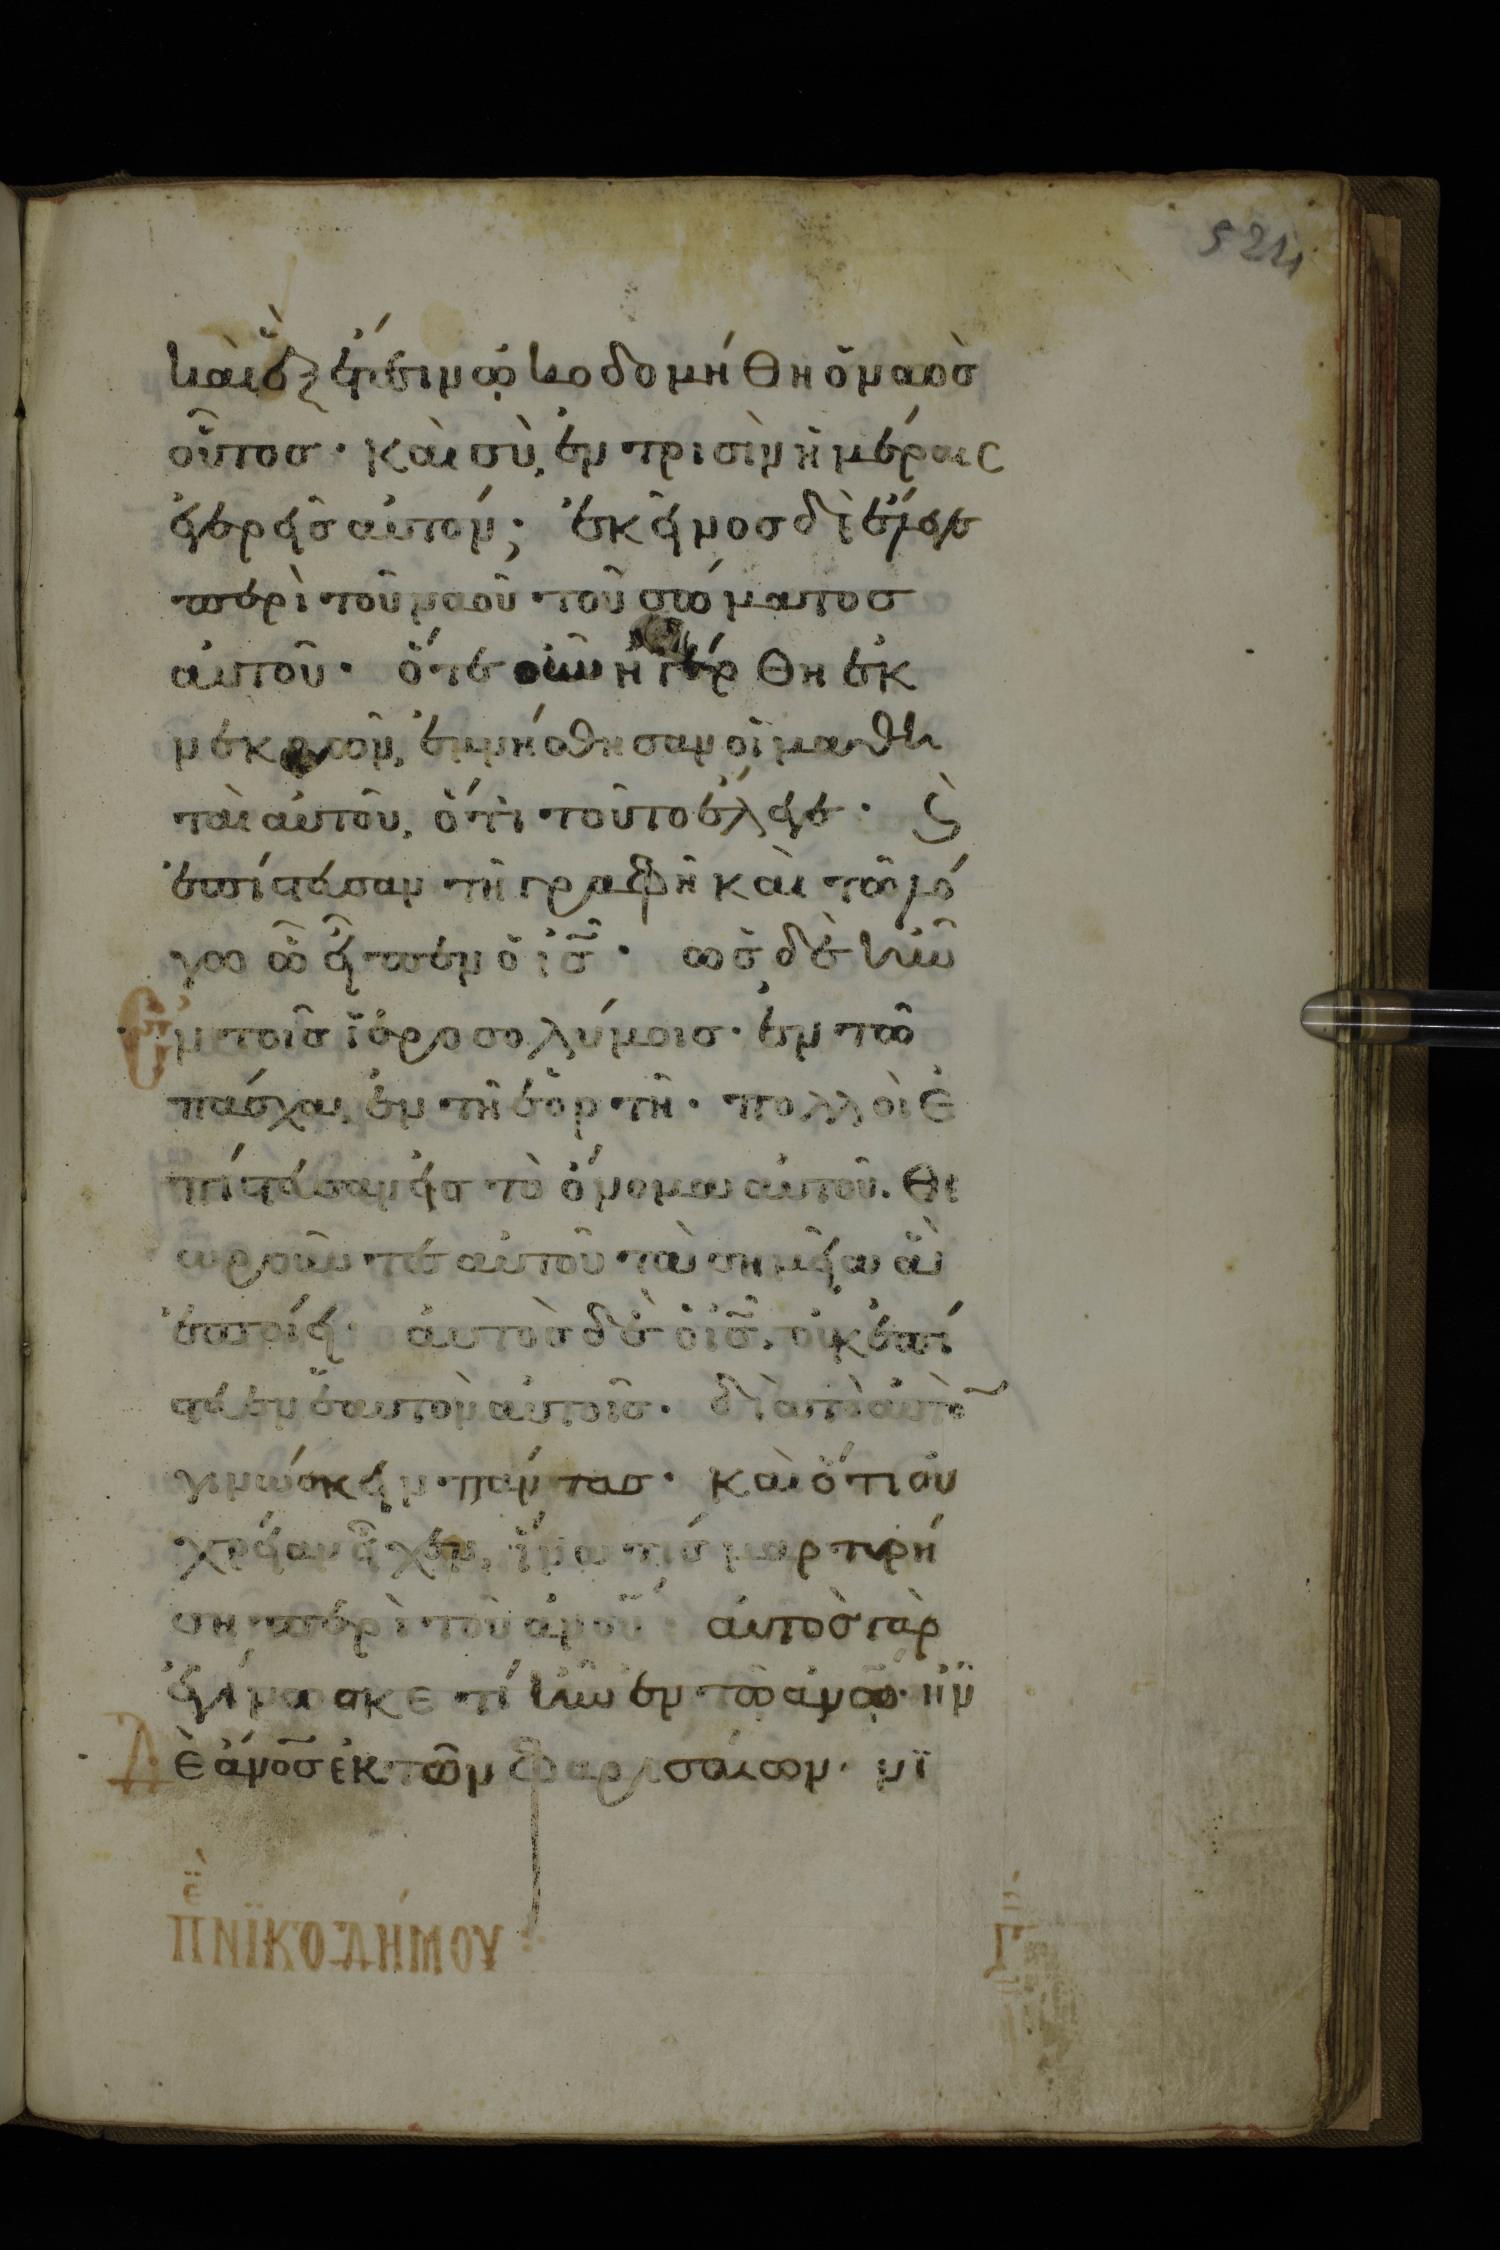 524
καὶ ἓξ ἔτεσιν ὠκοδομήθη ὁ ναὸσ
οὗτοσ· καὶ σὺ, ἐν τρισὶν ἡμέραις
ἐγερεῖσ αὐτόν; ἐκεῖνοσ δὲ ἔλεγε
περὶ τοῦ ναοῦ τοῦ σώματοσ
αὐτοῦ· ὅτε οὖν ἠγέρθη ἐκ
νεκρῶν, ἐμνήσθησαν οἱ μαθη
ταὶ αὐτοῦ, ὅτι τοῦτο ἔλεγε· ϛ̀
ἐπίστευσαν τῆ γραφῆ καὶ τῶ λό
γω ὧ εἶπεν ὁ ισ̅· ὡσ δὲ ἦν
Ἐν τοῖσ ἱεροσολύμοισ· ἐν τῶ
πάσχα, ἐν τῆ ἑορτῆ· πολλοὶ ἐ
πίστευσαν εἰσ τὸ ὄνομα αὐτοῦ. θε
ωροῦντεσ αὐτοῦ τὰ σημεῖα ἃ
ἐποίει· αὐτὸσ δὲ ὁ ισ̅, οὐκ ἐπί
στευεν ἑαυτὸν αὐτοῖσ· διὰ τὸ αὐτὸ̅
γινώσκειν πάντασ· καὶ ὅτι οὐ
χρείαν εἶχεν, ἵνα τὶσ μαρτυρή
ση περὶ τοῦ ανου̅· αὐτὸσ γὰρ
ἐγίνωσκε τί ἦν ἐν τῶ ανω̅· ἦν
Δὲ ανοσ̅ ἐκ τῶν φαρισαίων· νι
π νικοδήμου